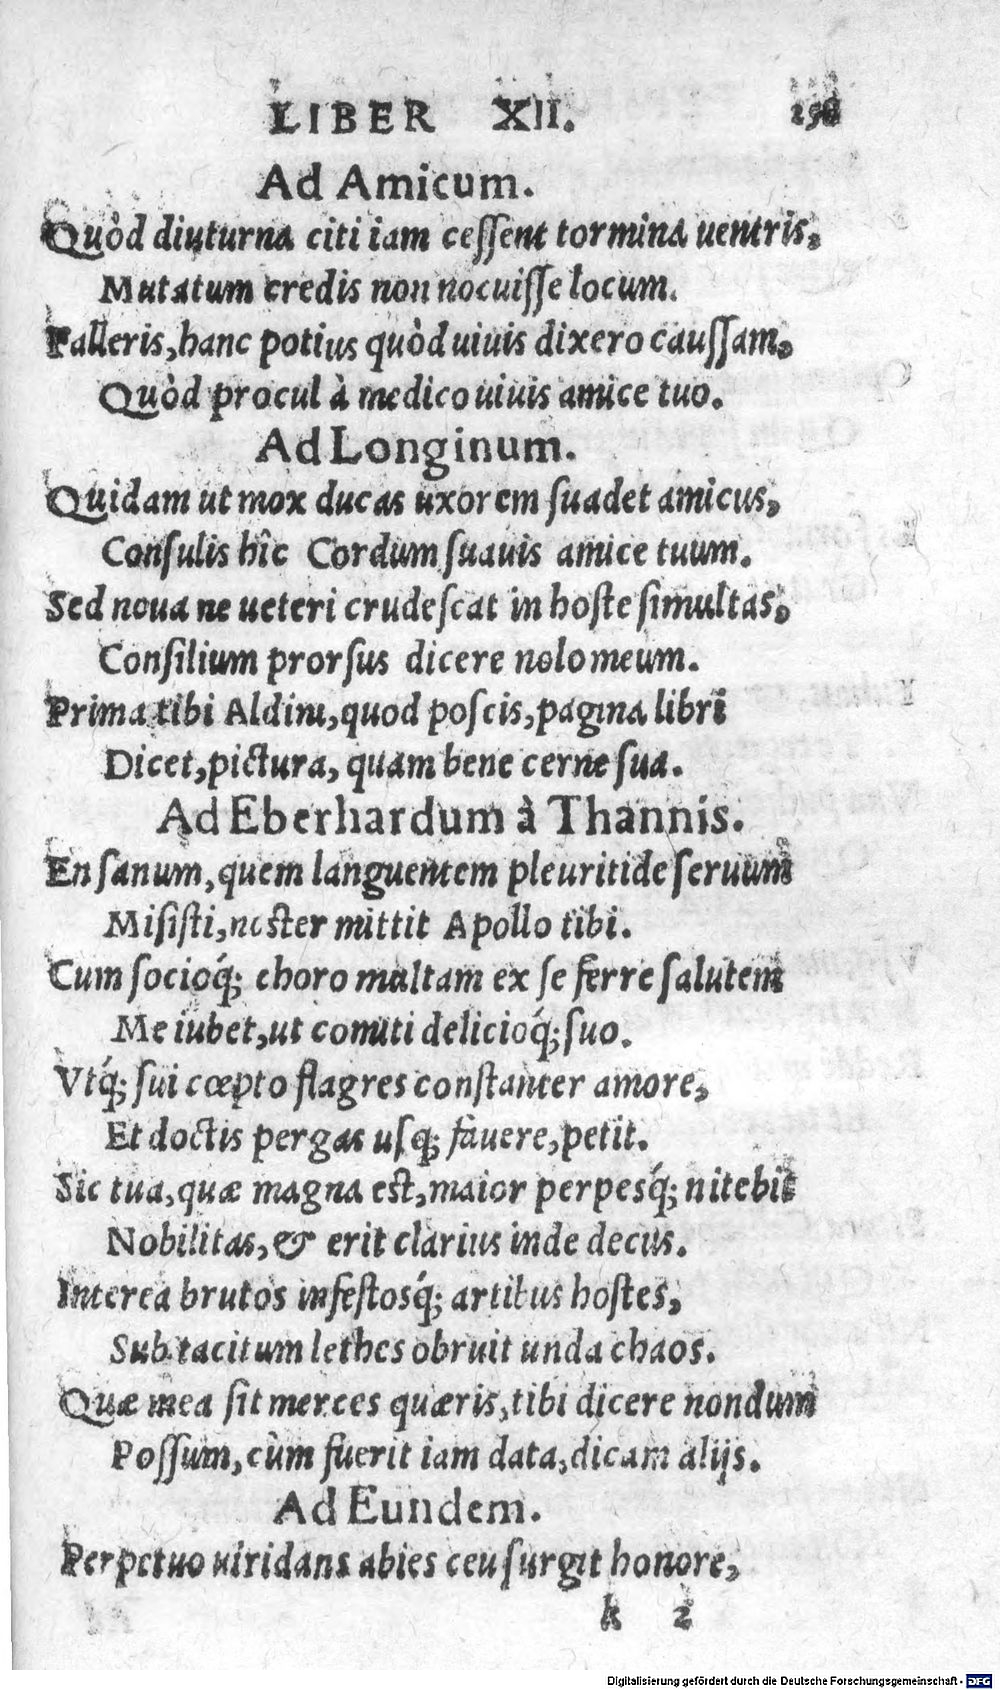 LIBER XII.
Ad Amicum.
Quòd diuturna citi iam ceſſent tormina uentris,
Mutatum credis non nocuiſſe locum.
Falleris, hanc potius quòd uiuis dixero cauſſam,
Quòd procul à medico uiuis amice tuo.
Ad Longinum.
Quidam ut mox ducas uxorem ſuadet amicus,
Conſulis hîc Cordum ſuauis amice tuum.
Sed noua ne ueteri crudeſcat in hoſte ſimultas,
Conſilium prorſus dicere nolo meum.
Prima tibi Aldini, quod poſcis, pagina libri
Dicet, pictura, quam bene cerne ſua.
Ad Eberhardum à Thannis.
En ſanum, quem languentem pleuritide ſeruum
Miſiſti, noſter mittit Apollo tibi.
Cum socioq́; choro multam ex ſe ferre ſalutem
Me iubet, ut comiti delicioq́; ſuo.
Vtq́; ſui cœpto flagres conſtanter amore,
Et doctis pergas uſq; fauere, petit.
Sic tua, quæ magna eſt, maior perpesq́; nitebit
Nobilitas, & erit clarius inde decus.
Interea brutos infeſtosq́; artibus hoſtes,
Sub tacitum lethes obruit unda chaos.
Quæ mea ſit merces quæris, tibi dicere nondum
Poſſum, cùm fuerit iam data, dicam alijs.
Ad Eundem.
Perpetuo uiridans abies ceu ſurgit honore,
k 2
Digitalisierung gefördert durch die Deutsche Forschungsgemeinschaft - DFG